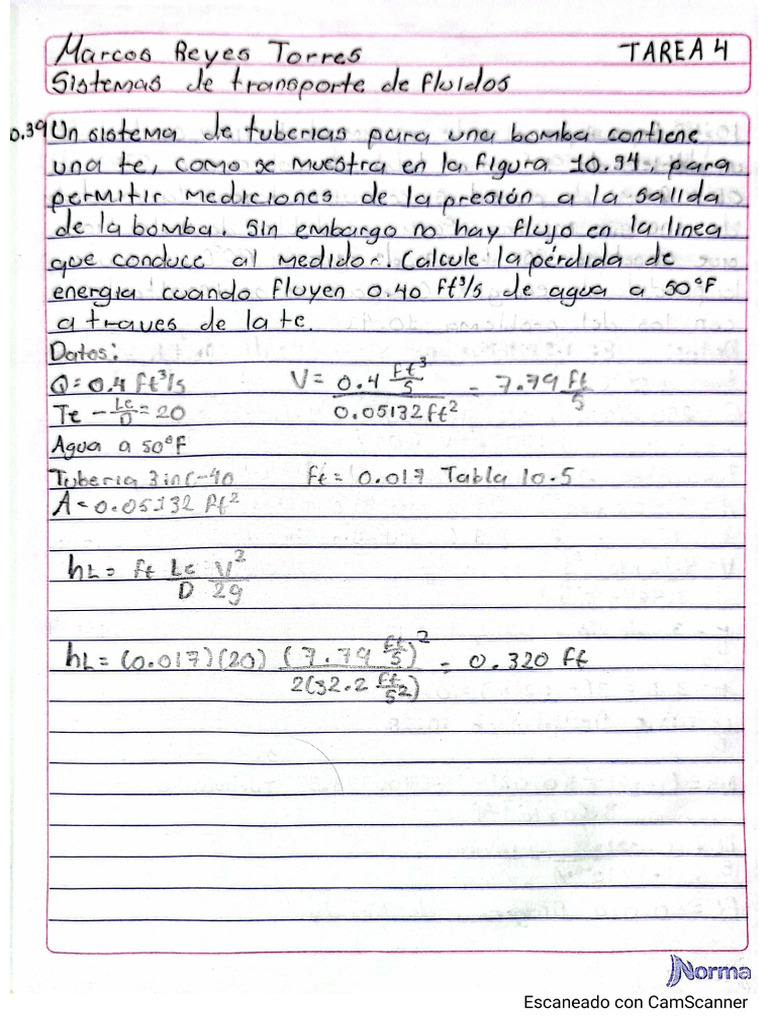 Marcos Reyes Torres TAREA 4
Sistemas de transporte de fluidos
0.39 Un sistema de tuberias para una bomba contiene
una te, como se muestra en la figura 10.34, para
permitir mediciones de la presión a la salida
de la bomba. Sin embargo no hay flujo en la linea
que conduce al medidor. Calcule la pérdida de
energia cuando fluyen 0.40 ft³/s de agua a 50°F
a traves de la te.
Datos:
Q = 0.4 ft³/s V = 0.4 ft³/s / 0.05132 ft² = 7.79 ft/s
Te - Le/D = 20
Agua a 50°F
Tuberia 3 in C-40 ft = 0.017 Tabla 10.5
A = 0.05132 ft²
hL = ft Le/D V²/2g
hL = (0.017)(20) (7.79 ft/s)² / 2(32.2 ft/s²) = 0.320 ft
Norma
Escaneado con CamScanner